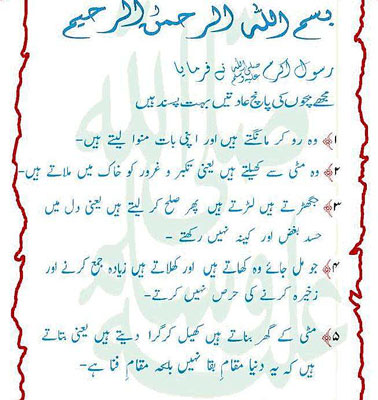 بسم اللہ الرحمٰن الرحیم
رسول اکرم صلی اللہ علیہ وسلم نے فرمایا
مجھے بچوں کی پانچ عادتیں بہت پسند ہیں
۱ وہ رو کر مانگتے ہیں اور اپنی بات منوا لیتے ہیں-
۲ وہ مٹی سے کھیلتے ہیں یعنی تکبر و غرور کو خاک میں ملاتے ہیں-
۳ جھگڑتے ہیں لڑتے ہیں پھر صلح کر لیتے ہیں یعنی دل میں
حسد بغض اور کینہ نہیں رکھتے -
۴ جو مل جائے وہ کھاتے ہیں اور کھلاتے ہیں زیادہ جمع کرنے اور
زخیرہ کرنے کی حرص نہیں کرتے-
۵ مٹی کے گھر بناتے ہیں کھیل کر گرا دیتے ہیں یعنی بتاتے
ہیں کہ یہ دنیا مقام بقا نہیں بلکہ مقامِ فنا ہے-